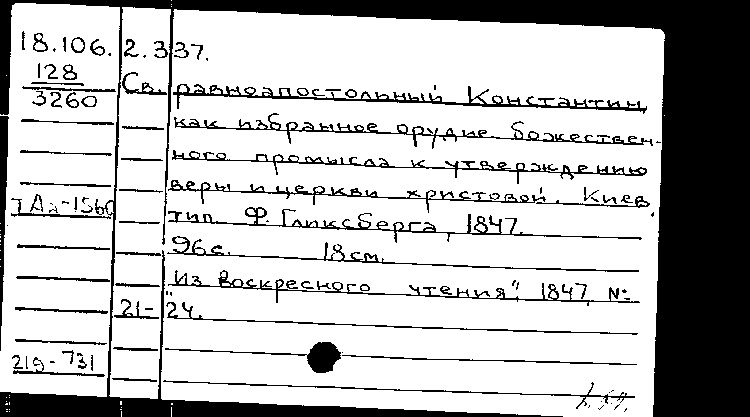 18.106.2.337.
128
3260
Св. равноапостольный Константин,
как избранное орудие божествен-
ного промысла к утверждению
веры и церкви христовой. Киев,
тип. Ф. Гликсберга, 1847.
96с. 18см.
"Из Воскресного чтения", 1847, №
21-24.
219-731